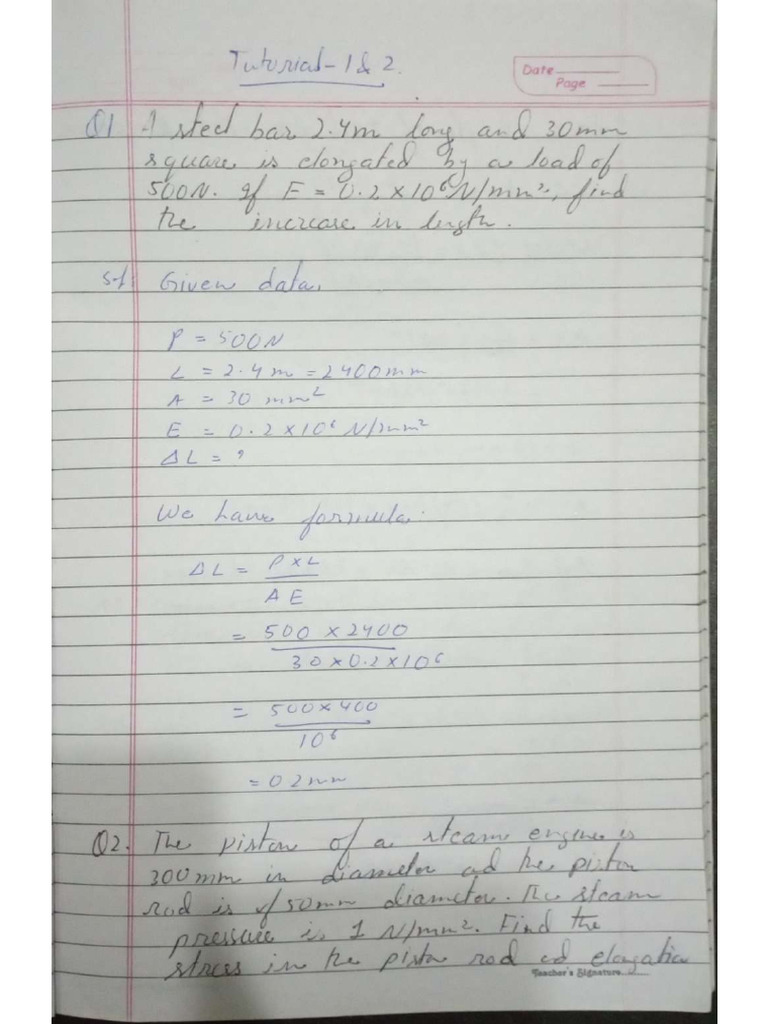 Tutorial - 1 & 2.
Date
Page
Q1 A steel bar 2.4m long and 30mm
square is elongated by a load of
500N. If E = 0.2 × 10⁶ N/mm², find
the increase in length.
Sol: Given data,
P = 500N
L = 2.4 m = 2400mm
A = 30 mm²
E = 0.2 × 10⁶ N/mm²
ΔL = ?
We have formula:
ΔL = P × L
A E
= 500 × 2400
30 × 0.2 × 10⁶
= 500 × 400
10⁶
= 0.2mm
Q2. The piston of a steam engine is
300mm in diameter ad the piston
rod is of 50mm diameter. The steam
pressure is 1 N/mm². Find the
stress in the piston rod ad elongation
Teacher's Signature